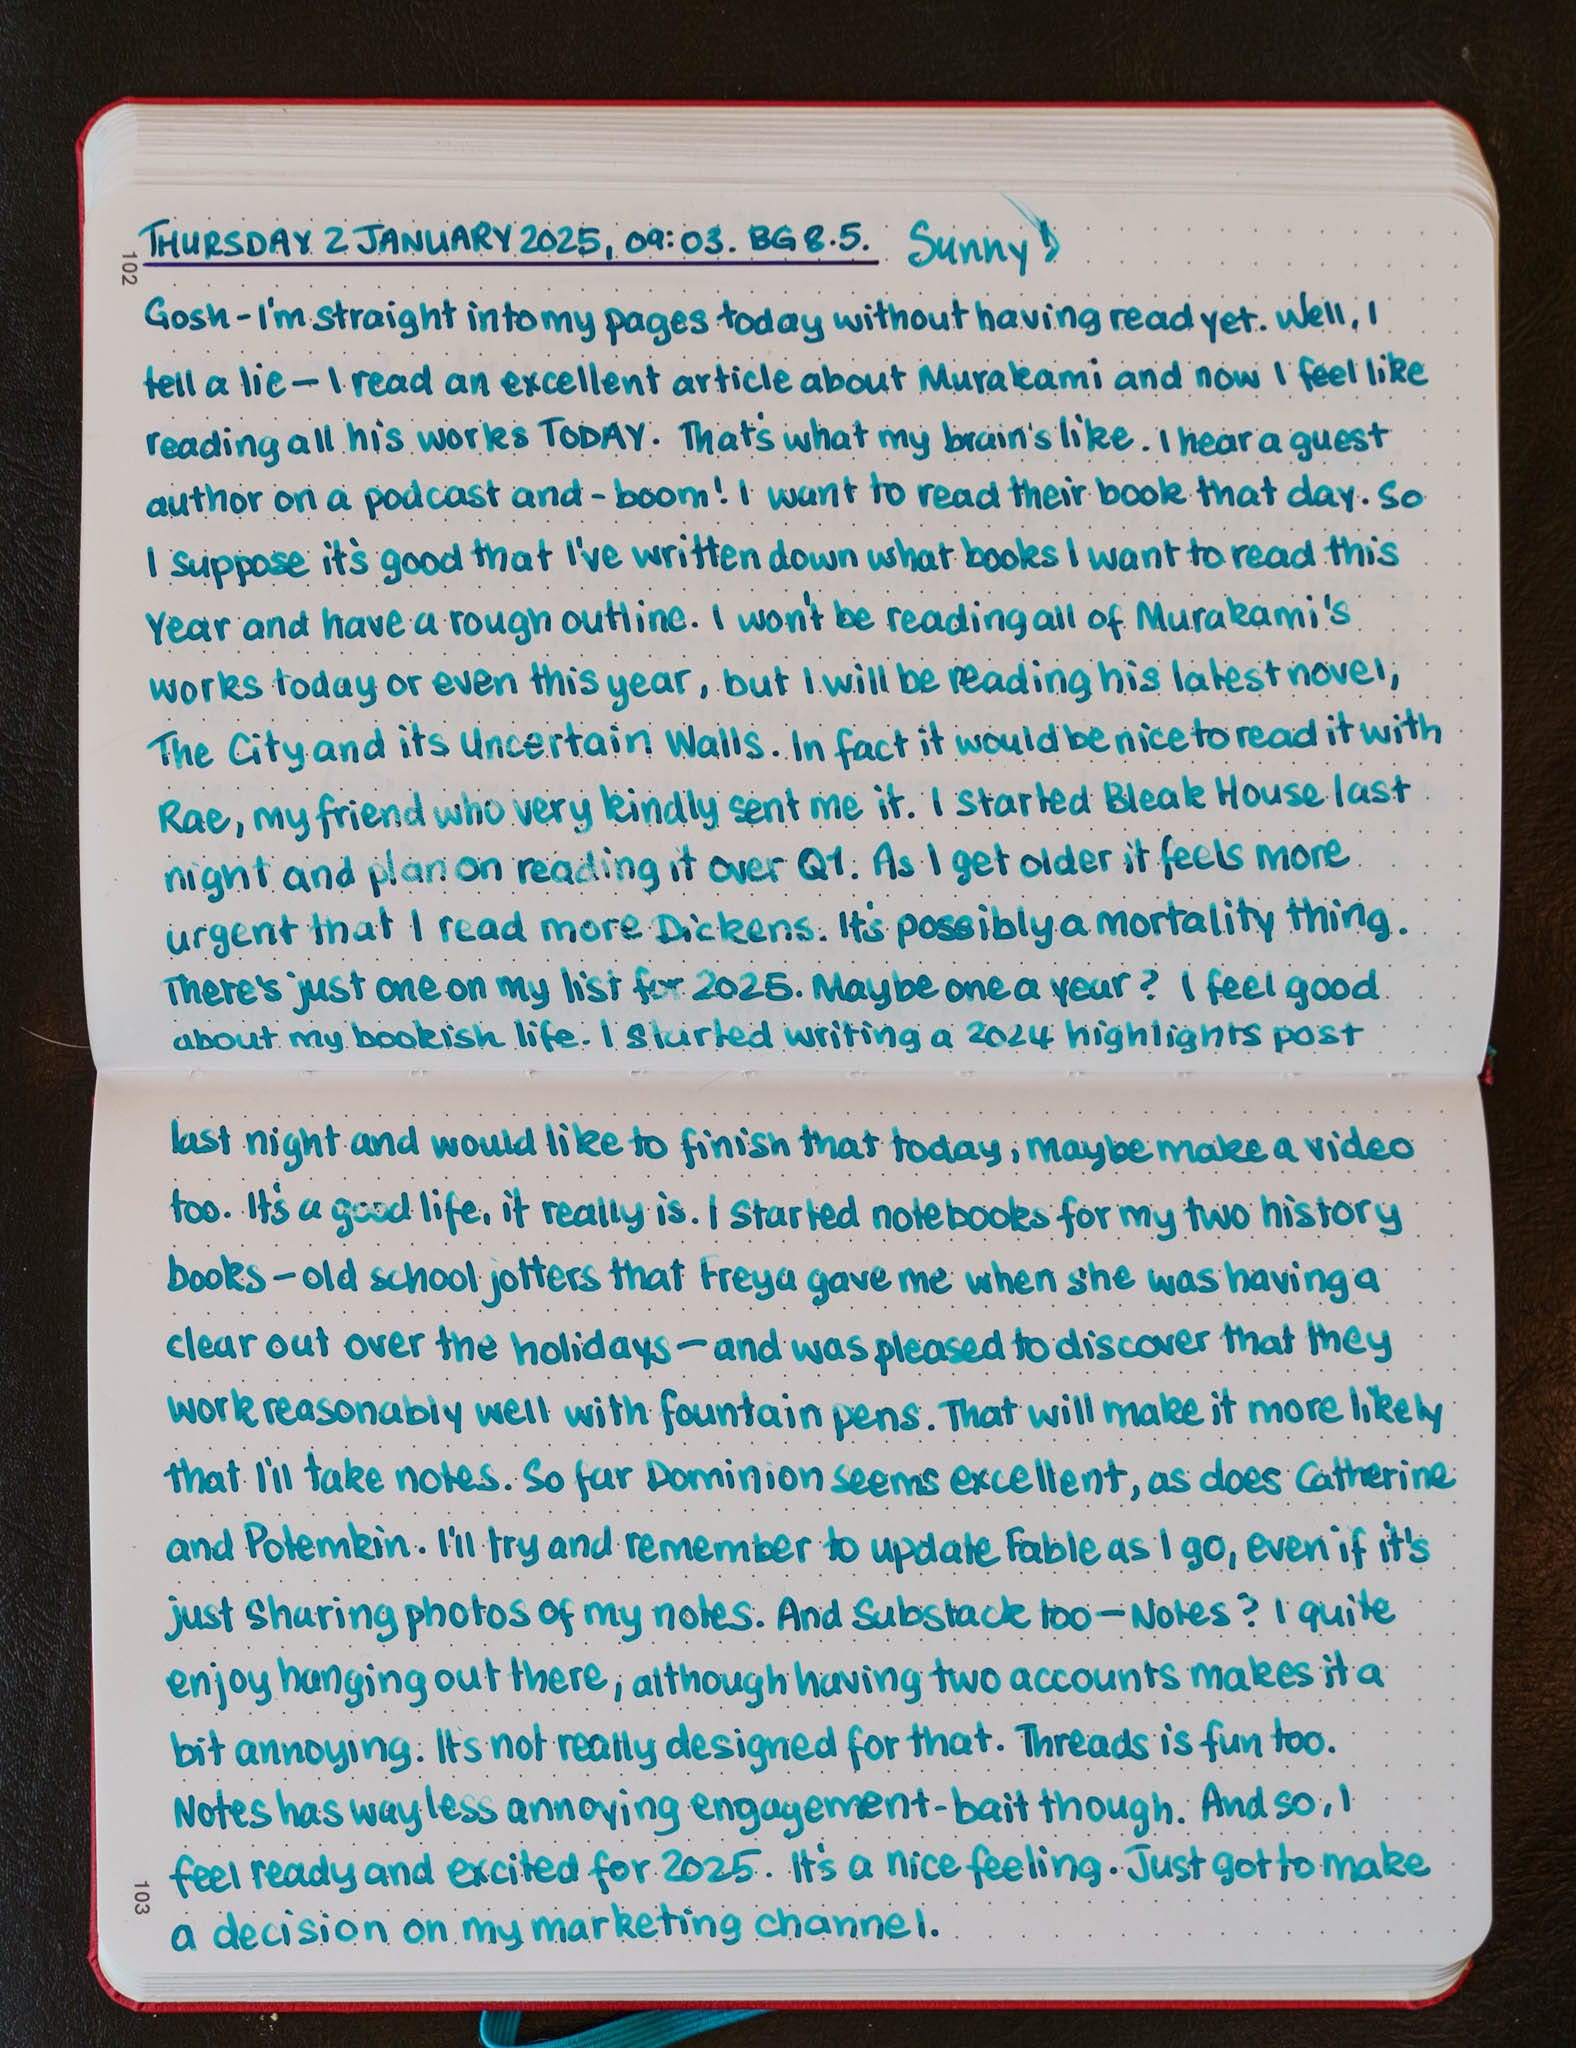 102
THURSDAY 2 JANUARY 2025, 09:03. BG 8.5. Sunny!
Gosh - I'm straight into my pages today without having read yet. Well, I
tell a lie — I read an excellent article about Murakami and now I feel like
reading all his works TODAY. That's what my brain's like. I hear a guest
author on a podcast and - boom! I want to read their book that day. So
I suppose it's good that I've written down what books I want to read this
Year and have a rough outline. I won't be reading all of Murakami's
works today or even this year, but I will be reading his latest novel,
The City and its Uncertain Walls. In fact it would be nice to read it with
Rae, my friend who very kindly sent me it. I started Bleak House last
night and plan on reading it over Q1. As I get older it feels more
urgent that I read more Dickens. It's possibly a mortality thing.
There's just one on my list for 2025. Maybe one a year? I feel good
about my bookish life. I started writing a 2024 highlights post
last night and would like to finish that today, maybe make a video
too. It's a good life, it really is. I started notebooks for my two history
books — old school jotters that Freya gave me when she was having a
clear out over the holidays — and was pleased to discover that they
work reasonably well with fountain pens. That will make it more likely
that I'll take notes. So far Dominion seems excellent, as does Catherine
and Potemkin. I'll try and remember to update Fable as I go, even if it's
just sharing photos of my notes. And Substack too — Notes? I quite
enjoy hanging out there, although having two accounts makes it a
bit annoying. It's not really designed for that. Threads is fun too.
Notes has way less annoying engagement-bait though. And so, I
feel ready and excited for 2025. It's a nice feeling. Just got to make
a decision on my marketing channel.
103